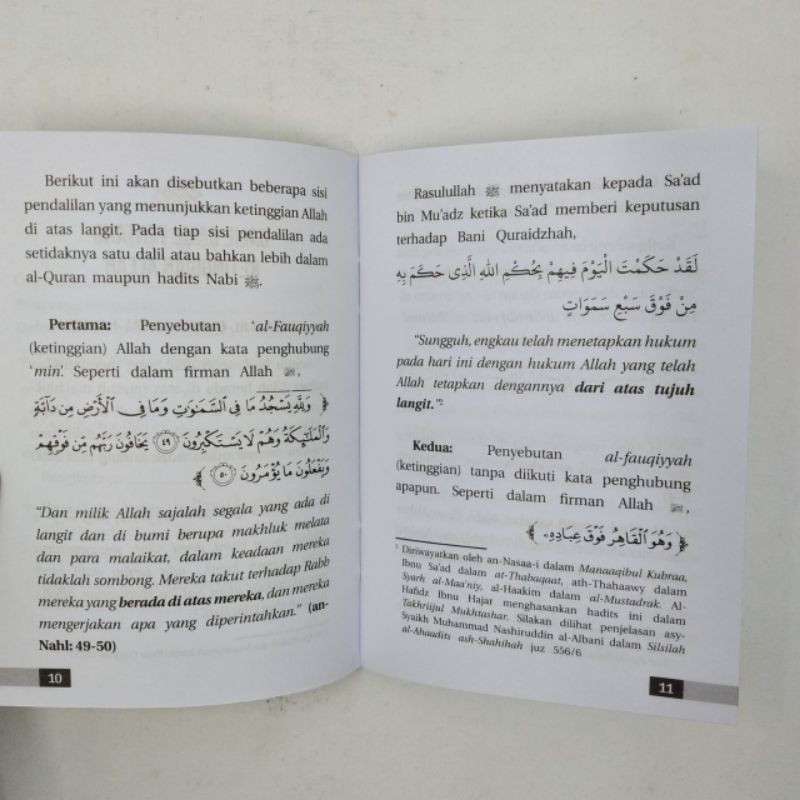 Berikut ini akan disebutkan beberapa sisi
pendalilan yang menunjukkan ketinggian Allah
di atas langit. Pada tiap sisi pendalilan ada
setidaknya satu dalil atau bahkan lebih dalam
al-Quran maupun hadits Nabi ﷺ.
Pertama: Penyebutan 'al-Fauqiyyah
(ketinggian) Allah dengan kata penghubung
'min'. Seperti dalam firman Allah ,
﴿ وَلِلَّهِ يَسْجُدُ مَا فِي السَّمَٰوَٰتِ وَمَا فِي الْأَرْضِ مِن دَآبَّةٍ
وَالْمَلَٰٓئِكَةُ وَهُمْ لَا يَسْتَكْبِرُونَ ﴿٤٩﴾ يَخَافُونَ رَبَّهُم مِّن فَوْقِهِمْ
وَيَفْعَلُونَ مَا يُؤْمَرُونَ ﴿٥٠﴾ ﴾
"Dan milik Allah sajalah segala yang ada di
langit dan di bumi berupa makhluk melata
dan para malaikat, dalam keadaan mereka
tidaklah sombong. Mereka takut terhadap Rabb
mereka yang berada di atas mereka, dan mereka
mengerjakan apa yang diperintahkan." (an-
Nahl: 49-50)
10
Rasulullah ﷺ menyatakan kepada Sa'ad
bin Mu'adz ketika Sa'ad memberi keputusan
terhadap Bani Quraidzhah,
لَقَدْ حَكَمْتَ الْيَوْمَ فِيهِمْ بِحُكْمِ اللهِ الَّذِى حَكَمَ بِهِ
مِنْ فَوْقَ سَبْعِ سَمَوَاتٍ
"Sungguh, engkau telah menetapkan hukum
pada hari ini dengan hukum Allah yang telah
Allah tetapkan dengannya dari atas tujuh
langit."2
Kedua: Penyebutan al-fauqiyyah
(ketinggian) tanpa diikuti kata penghubung
apapun. Seperti dalam firman Allah ,
﴿ وَهُوَ الْقَاهِرُ فَوْقَ عِبَادِهِۦ ﴾
Diriwayatkan oleh an-Nasaa-i dalam Manaaqibul Kubraa,
Ibnu Sa'ad dalam at-Thabaqaat, ath-Thahaawy dalam
Syarh al-Maa'niy, al-Haakim dalam al-Mustadrak. Al-
Hafidz Ibnu Hajar menghasankan hadits ini dalam
Takhriijul Mukhtashar. Silakan dilihat penjelasan asy-
Syaikh Muhammad Nashiruddin al-Albani dalam Silsilah
al-Ahaadits ash-Shahihah juz 556/6
11